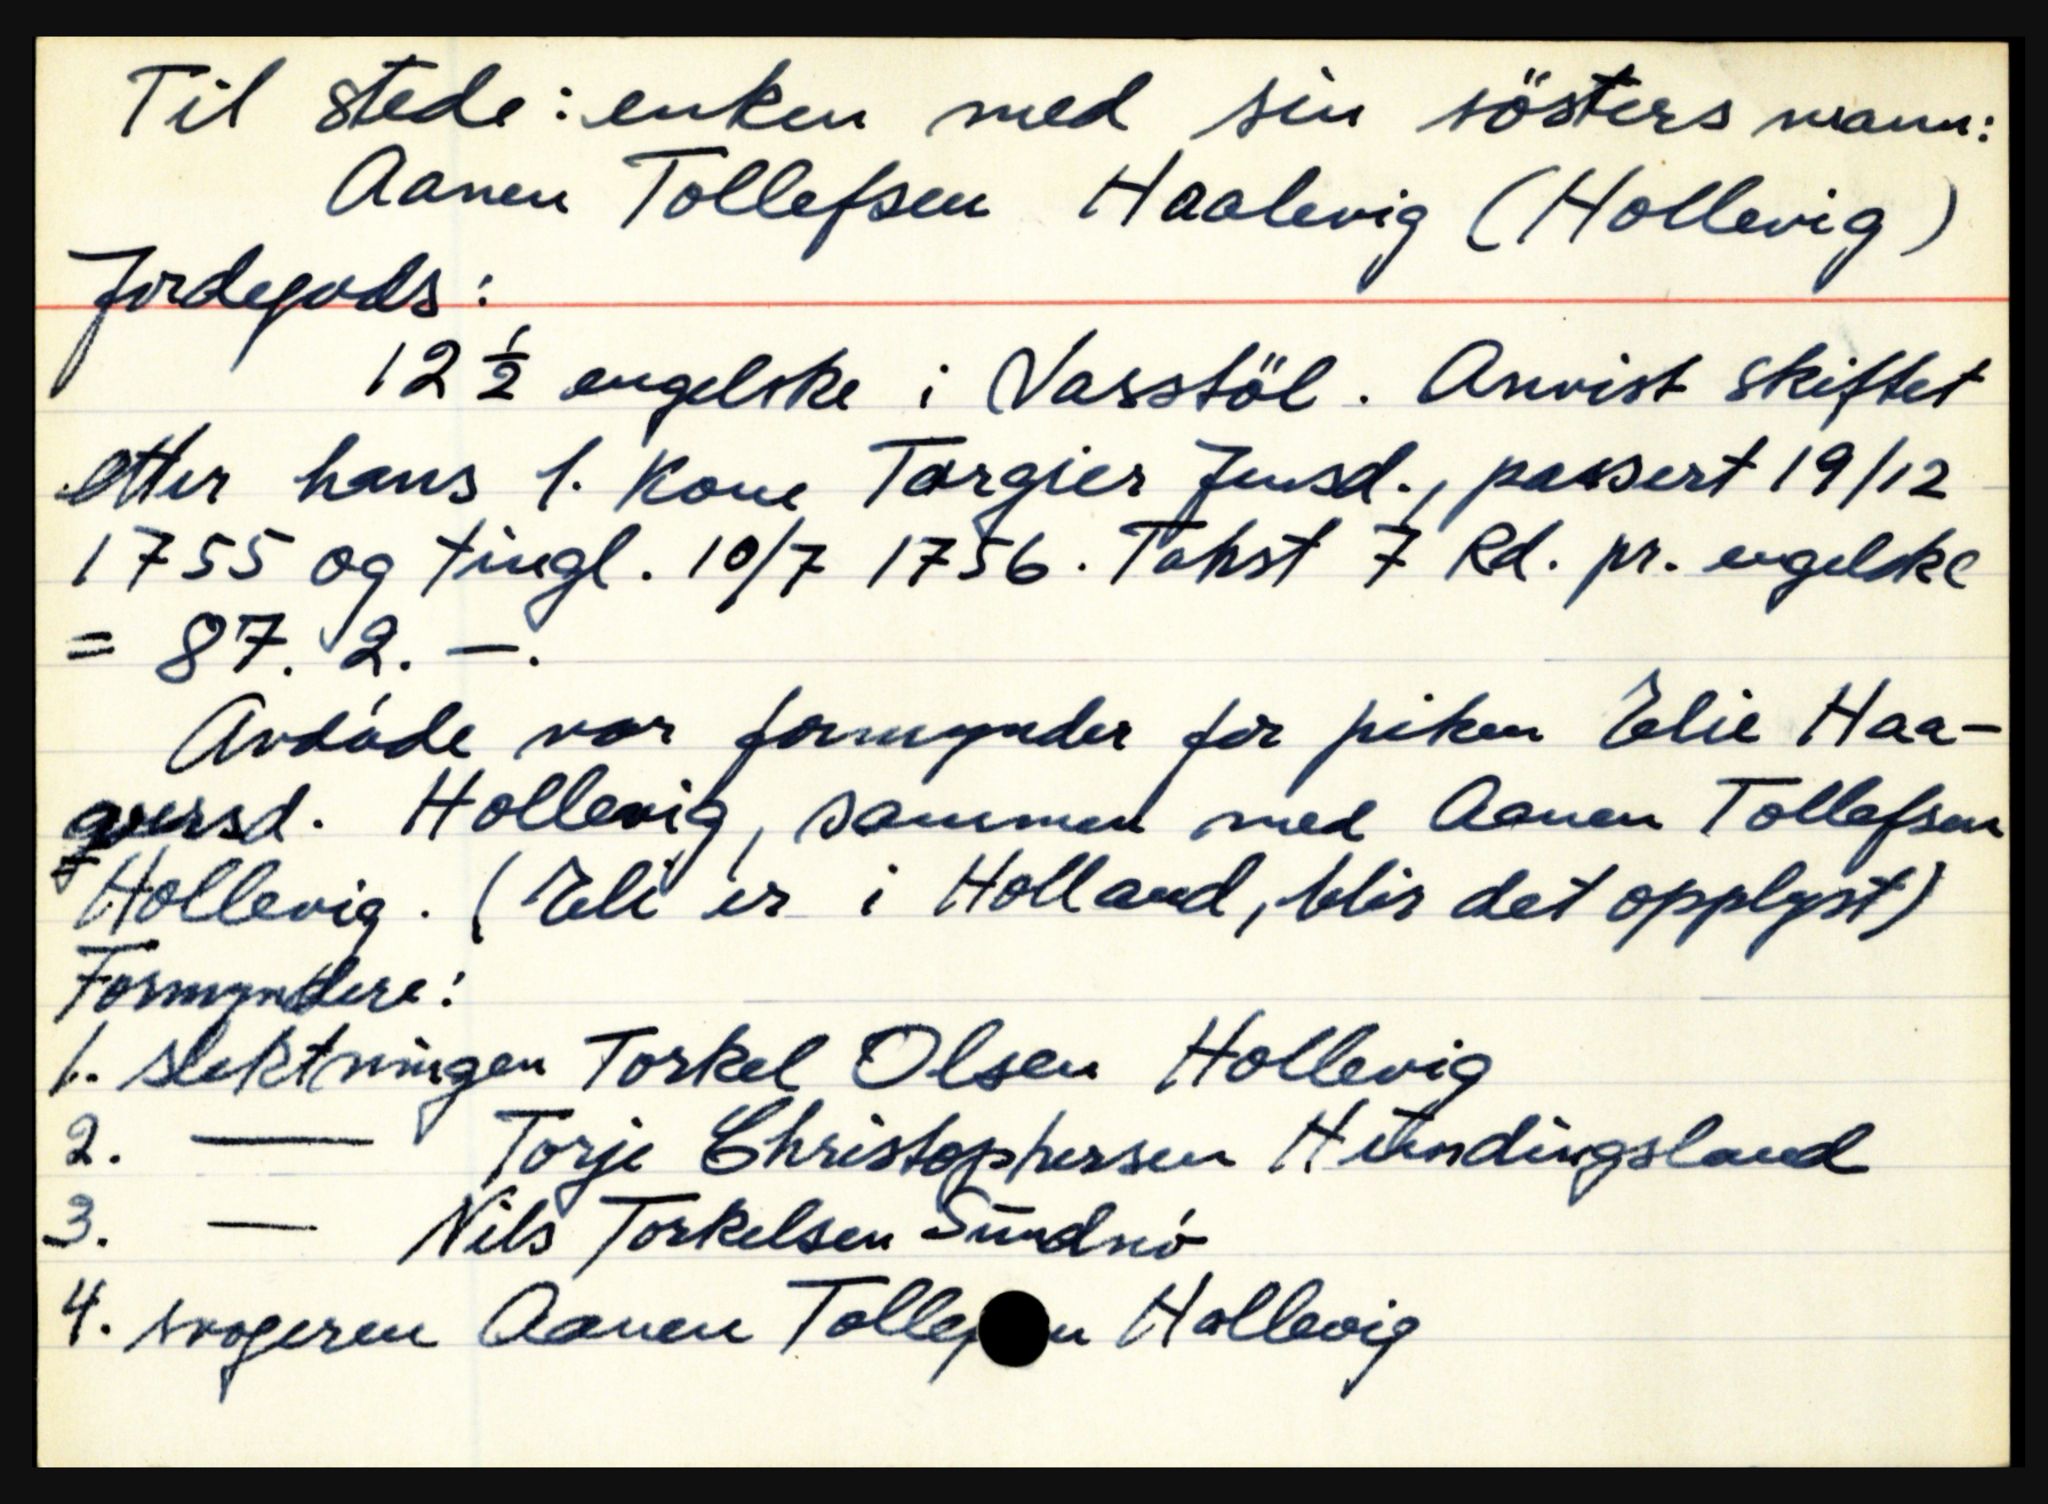 Til stede: enken med sin sösters mann:
Aanen Tollefsen Haalevig (Hollevig)
Jordegods:
12 ½ engelske i Vasstöl. Anvist skiftet
etter hans 1. kone Torgier Jensd., passert 19/12
1755 og tingl. 10/7 1756. Takst 7 Rd. pr. engelske
= 87. 2. —.
Avdöde var formynder for piken Elie Haa-
gversd. Hollevig, sammen med Aanen Tollefsen
Hollevig. (Eli er i Holland, blir det opplyst)
Formyndere:
1. slektningen Torkel Olsen Hollevig
2. — Torje Christophersen Hundingsland
3. — Nils Torkelsen Sundnö
4. svogeren Aanen Hollevig